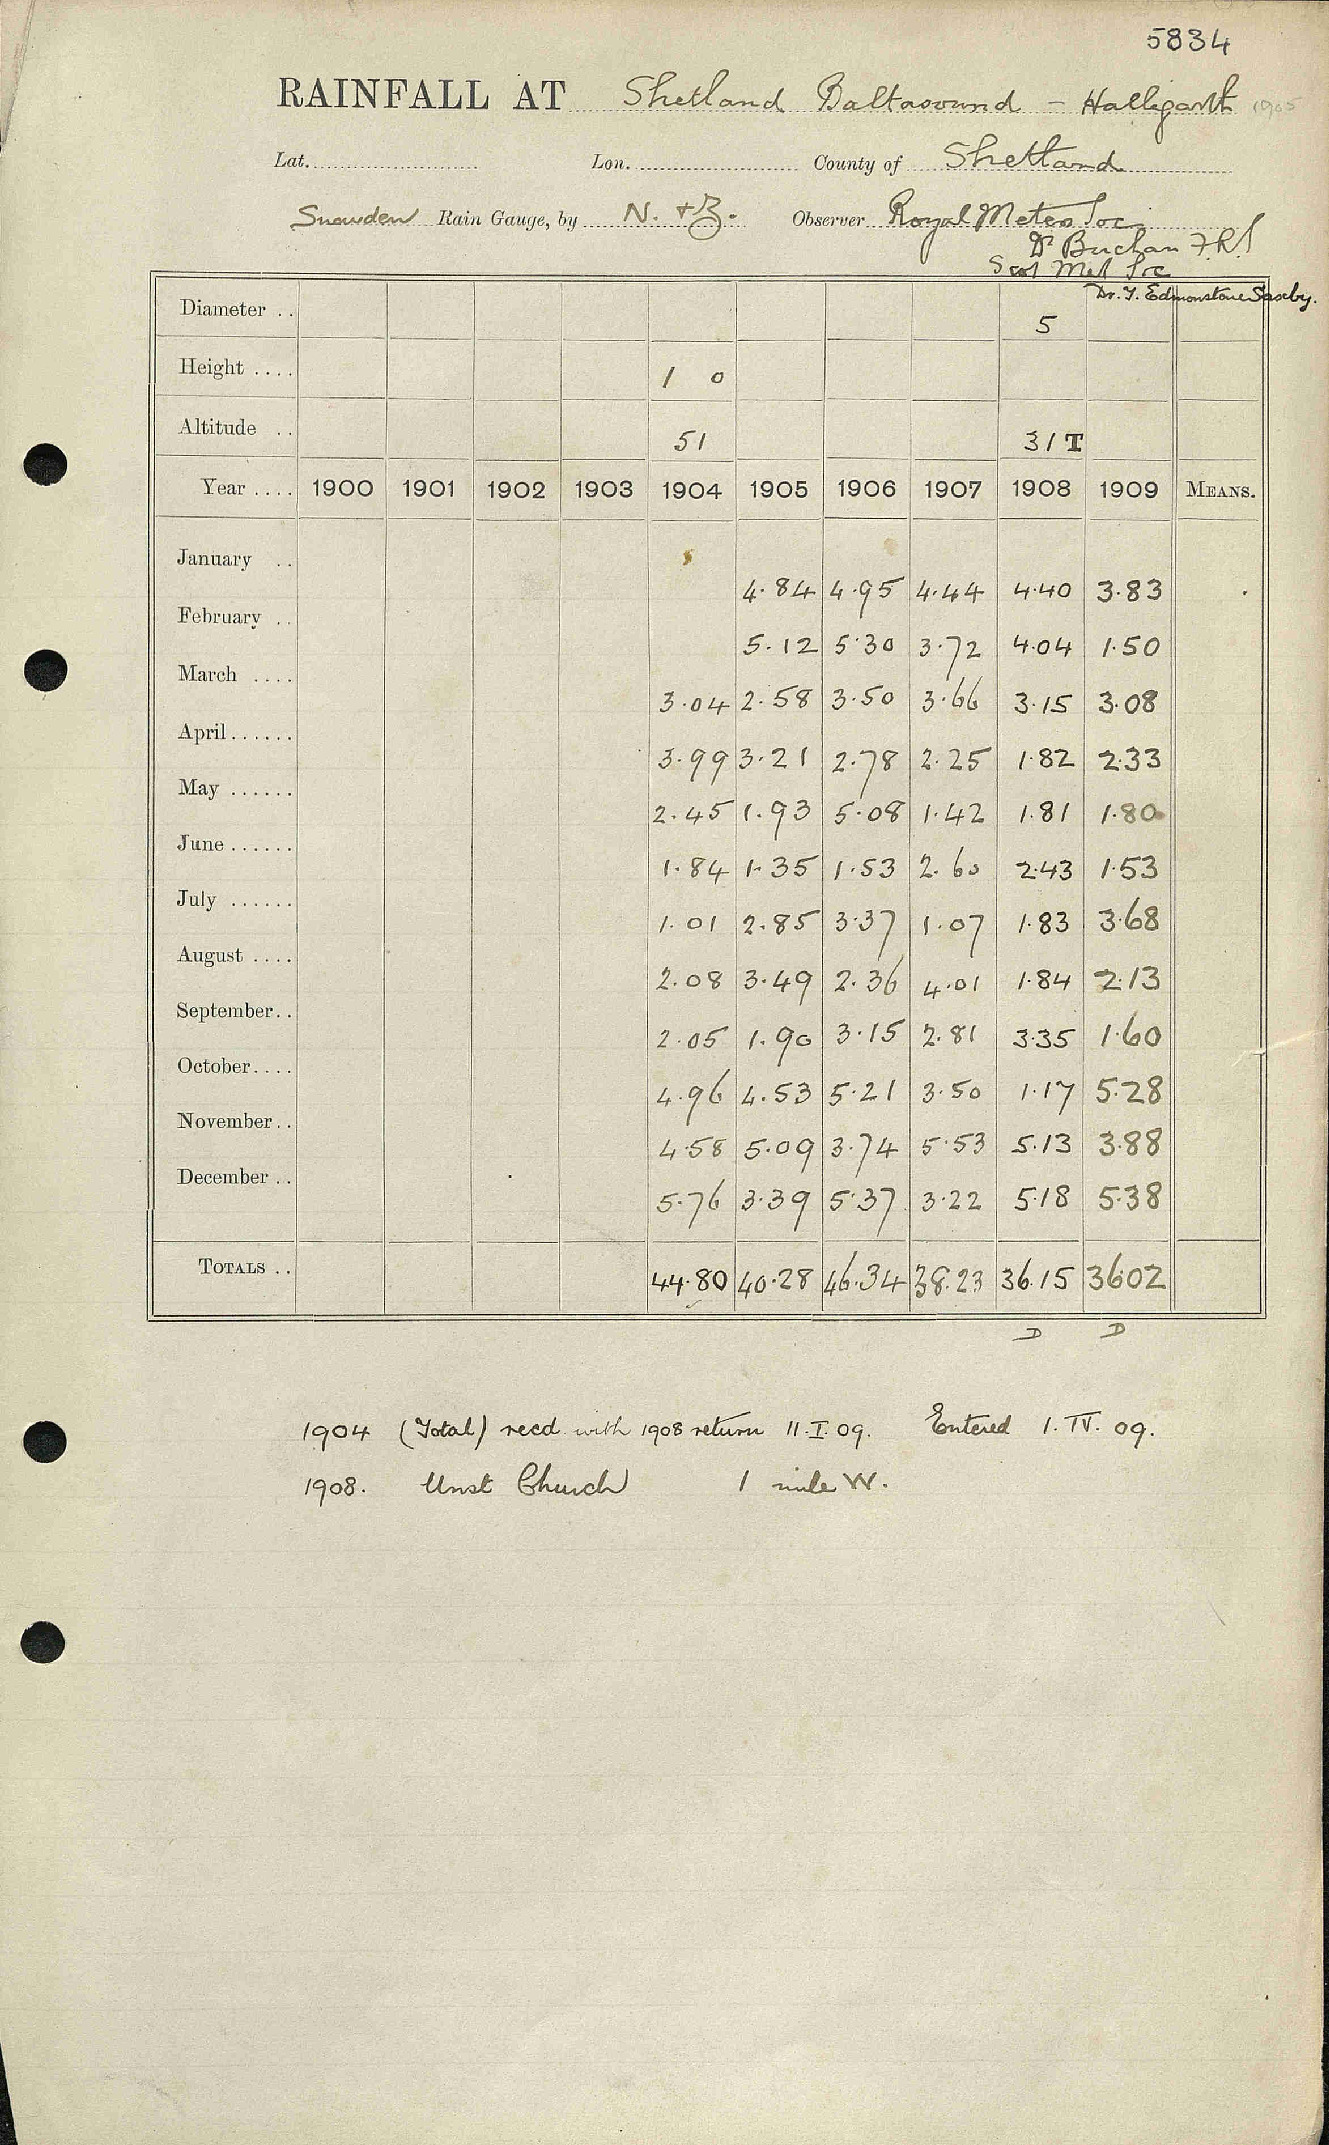 5834
RAINFALL AT Shetland Baltasound - Halligarth 1905
Lat. Lon. County of Shetland
Snowden Rain Gauge, by N. & Z. Observer Royal Meteo Soc
Dr Buchan F.R.S
Scot Met Soc
Dr. T. Edmonstone Saxby.
Diameter .. 5
Height .... 1 0
Altitude .. 51 31T
Year .... 1900 1901 1902 1903 1904 1905 1906 1907 1908 1909 MEANS.
January .. 4.84 4.95 4.44 4.40 3.83
February .. 5.12 5.30 3.72 4.04 1.50
March .... 3.04 2.58 3.50 3.66 3.15 3.08
April...... 3.99 3.21 2.78 2.25 1.82 2.33
May ...... 2.45 1.93 5.08 1.42 1.81 1.80
June...... 1.84 1.35 1.53 2.60 2.43 1.53
July ...... 1.01 2.85 3.37 1.07 1.83 3.68
August .... 2.08 3.49 2.36 4.01 1.84 2.13
September.. 2.05 1.90 3.15 2.81 3.35 1.60
October.... 4.96 4.53 5.21 3.50 1.17 5.28
November.. 4.58 5.09 3.74 5.53 5.13 3.88
December .. 5.76 3.39 5.37 3.22 5.18 5.38
TOTALS .. 44.80 40.28 46.34 38.23 36.15 36.02
D D
1904 (Total) recd with 1908 return 11.I.09. Entered 1.IV.09.
1908. Unst Church 1 mile W.